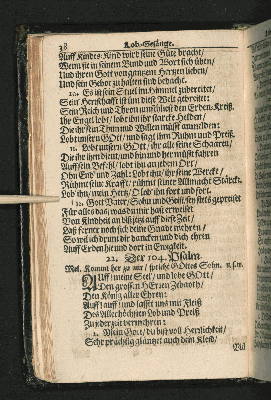 38 Lob-Gesänge.
Auff Kindes-Kind wird seine Güte bracht/
Wenn sie in seinem Bund und Wort sich üben/
Und ihren Gott von gantzem Hertzen lieben/
Und sein Gebot zu halten sind bedacht.
10. Es ist sein Stuel im Himmel zubereitet/
Sein Herrschafft ist üm diese Welt gebreitet:
Sein Reich und Thron umschleust den Erden-Kreiß.
Ihr Engel lobt/ lobt ihn ihr starcke Helden/
Die ihr sein Thun und Willen müßt vermelden:
Lobt unsern GOtt/ und sagt ihm Ruhm und Preiß.
11. Lobt unsern GOtt/ ihr alle seine Schaaren/
Die ihr ihm dient/ und hin und her müßt fahren
Auff sein Befehl/ lobt ihn an jedem Ort/
Ohn End' und Zahl: Lobt ihn/ ihr seine Werck/
Rühmt seine Krafft/ rühmt seine Allmacht Stärck.
Lob ihn/ mein Hertz/ O lob ihn fort und fort.
12. Gott Vater/ Sohn und Geist sey stets gepreiset
Für alles das/ was du mir hast erweiset
Von Kindheit an biß jetzt auff diese Zeit/
Laß ferner noch sich deine Gnade mehren/
So wil ich drum dir dancken und dich ehren
Auff Erden hie und dort in Ewigkeit.
22. Der 104. Psalm.
Mel. Kommt her zu mir/ spricht GOttes Sohn. u. s. w.
AUff/ meine Seel/ und lobe GOtt/
Den grossen HErren Zebaoth/
Den König aller Ehren:
Auff/ auff/ und lasset uns mit Fleiß
Des Allerhöchsten Lob und Preiß
Zu jederzeit vermehren:
2. Mein Gott/ du bist voll Herrlichkeit/
Sehr prächtig gläntzt auch dein Kleid/